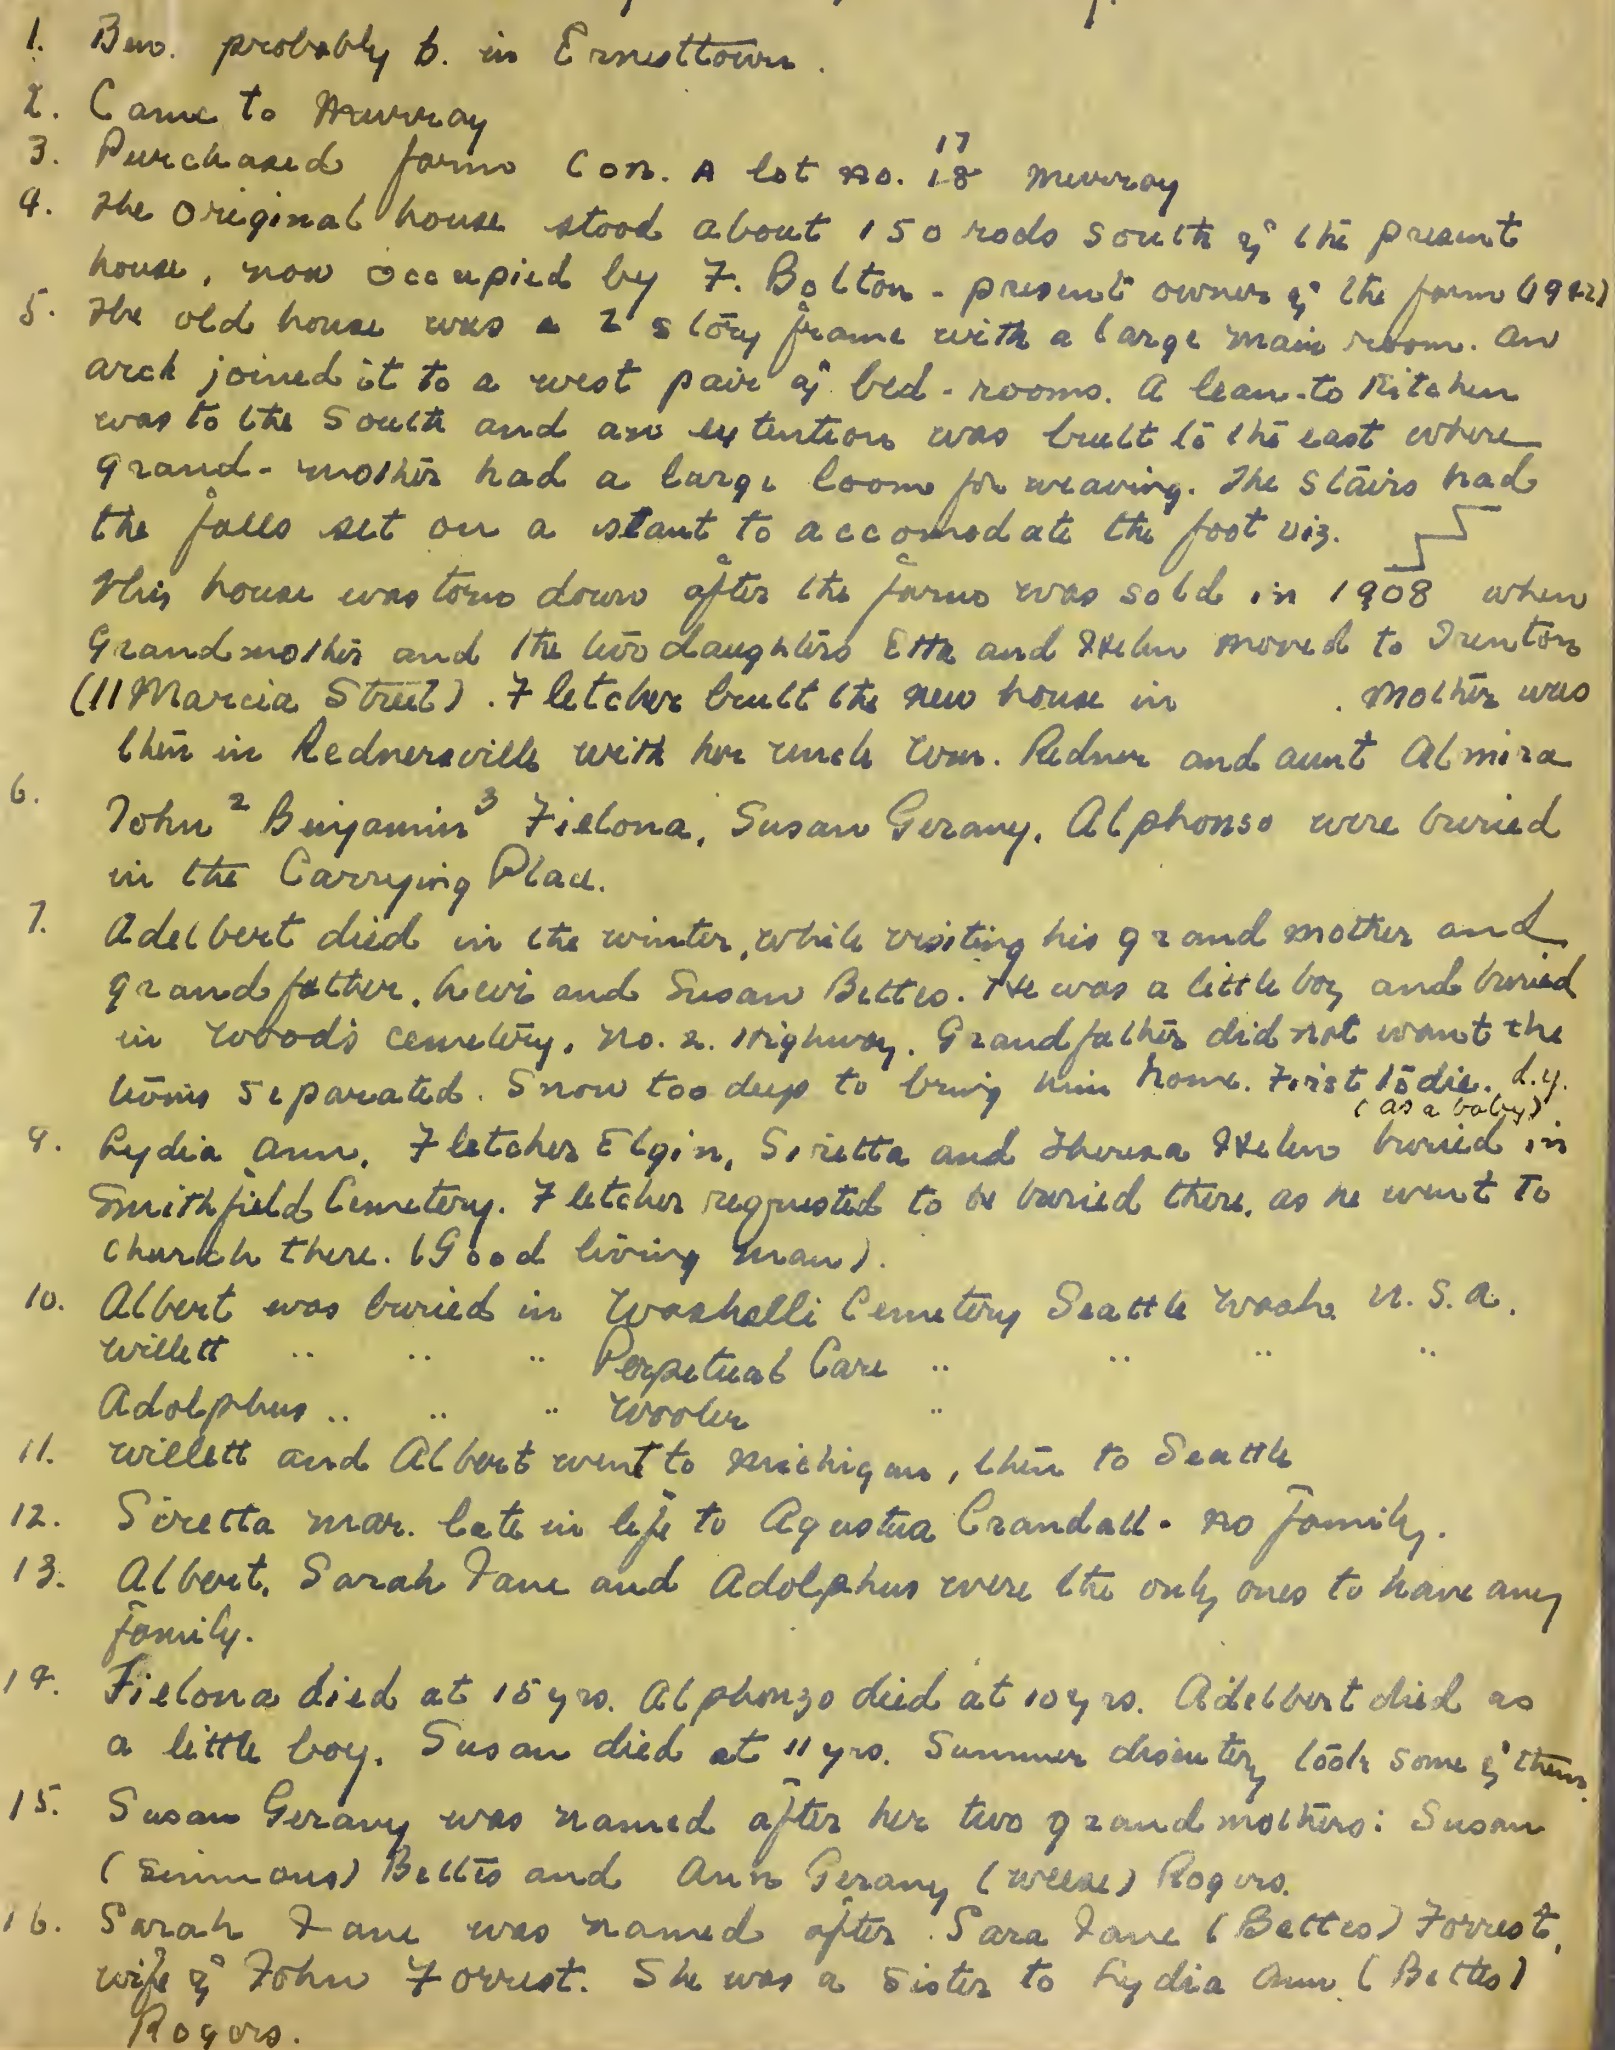 1. Ben. probably b. in Ernesttown.
2. Came to Murray
17
3. Purchased farm Con. A lot no. 18 Murray
4. The original house stood about 150 rods south of the present
house, now occupied by F. Bolton - present owner of the farm (1982)
5. The old house was a 2 story frame with a large main room. An
arch joined it to a west pair of bed-rooms. A lean-to Kitchen
was to the South and an extention was built to the east where
grand-mother had a large loom for weaving. The stairs had
the falls set on a slant to accomodate the foot viz.
This house was torn down after the farm was sold in 1908 when
Grandmother and the two daughters Etta and Helen moved to Trenton
(11 Marcia Street). Fletcher built the new house in . Mother was
then in Rednersville with her uncle Wm. Redner and aunt Almira
6. John 2 Benjamin 3 Fielona, Susan Gerany, Alphonso were buried
in the Carrying Place.
7. Adelbert died in the winter, while visiting his grand mother and
grand father, Levi and Susan Bettes. He was a little boy and buried
in Wood's cemetery, No. 2. Highway. Grandfather did not want the
twins separated. Snow too deep to bring him home. First to die. d.y.
(as a baby)
9. Lydia Ann, Fletcher Elgin, Siretta and Theresa Helen buried in
Smithfield Cemetery. Fletcher requested to be buried there, as he went to
church there. (Good living man).
10. Albert was buried in Washelli Cemetery Seattle Wash. U.S.A.
Willett " " " Perpetual Care " " " "
Adolphus " " " Wooler "
11. Willett and Albert went to Michigan, then to Seattle
12. Siretta mar. late in life to Agustua Crandall - no family.
13. Albert, Sarah Jane and Adolphus were the only ones to have any
family.
14. Fielona died at 15 yrs. Alphonzo died at 10 yrs. Adelbert died as
a little boy. Susan died at 11 yrs. Summer disentery took some of them.
15. Susan Gerany was named after her two grandmothers: Susan
(Simmons) Bettes and Ann Gerany (Weese) Rogers.
16. Sarah Jane was named after Sara Jane (Bettes) Forrest,
wife of John Forrest. She was a sister to Lydia Ann (Bettes)
Rogers.